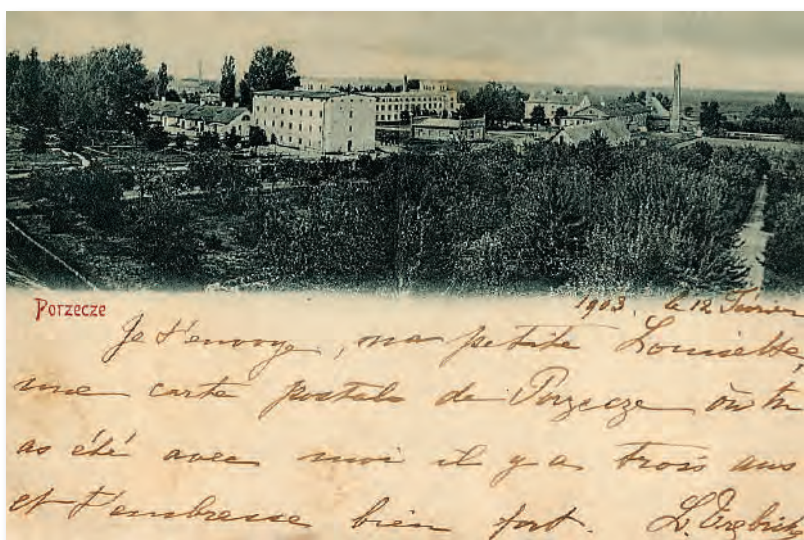 Porzecze
1903. le 12 Février
Je t'envoye, ma petite Louisette,
une carte postale de Porzecze où tu
as été avec moi il y a trois ans
et t'embresse bien fort. L.